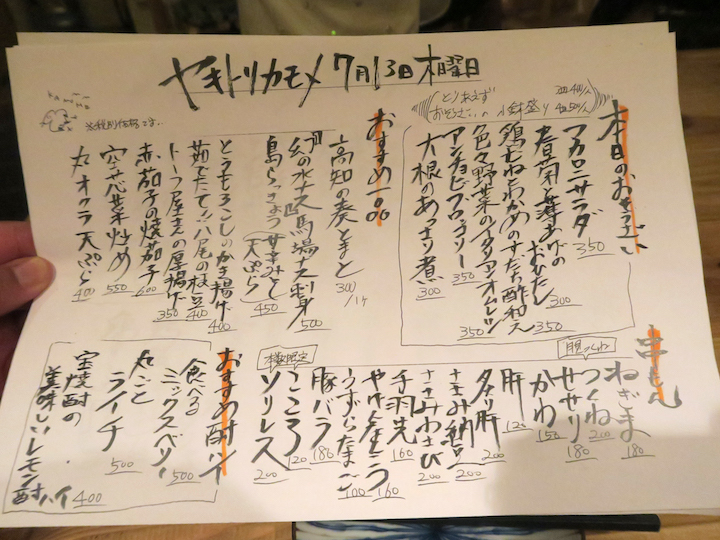 ヤキトリカモメ 7月13日 木曜日
※税別価格です…
とりあえず
小鉢盛り
本日のおそうざい
マカロニサラダ 350
春菊と薄あげのおひたし 300
鶏むねとわかめのすだち酢和え 350
色々野菜のイタリアンオムレツ 350
アンチョビブロッコリー 350
大根のあっさり煮 300
おすすめ一品
高知の奏とまと 300/1ケ
幻の水ナス 馬場ナス刺身 500
島らっきょう (天ぷら) 450
とうもろこしのかき揚げ 400
茹でたて!!八尾の枝豆 400
トーフ屋さんの厚揚げ 350
赤茄子の焼茄子 600
空芯菜炒め 550
丸オクラ天ぷら 400
串もん
ねぎま 180
つくね 200
せせり 180
かわ 150
肝 120
ささみわさび 200
手羽先 160
やげん 160
うずらたまご 100
豚バラ 180
本数限定
こころ 120
ソリレス 200
おすすめ酎ハイ
食べる ミックスベリー 500
丸ごと ライチ 500
宝焼酎の美味しいレモン酎ハイ 400